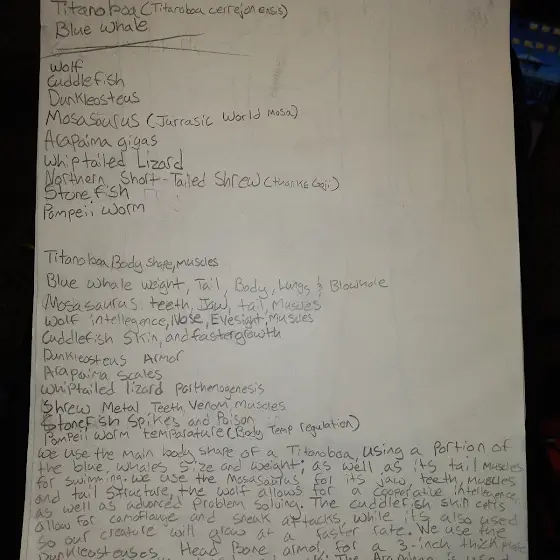 Titanoboa (Titanoboa cerrejonensis)
Blue Whale
Wolf
Cuddlefish
Dunkleosteus
Mosasaurus (Jurrasic World Mosa)
Arapaima gigas
Whiptailed Lizard
Northern Short-Tailed Shrew (thanks Goji)
Stonefish
Pompeii Worm
Titanoboa Body shape, muscles
Blue whale weight, Tail, Body, Lungs & Blowhole
Mosasaurus teeth, Jaw, tail, Muscles
Wolf intelleamce, Nose, Eyesight, Muscles
Cuddlefish Skin, and faster growth
Dunkleosteus Armor
Arapaima Scales
Whiptailed lizard parthenogenesis
Shrew Metal Teeth, Venom, Muscles
Stonefish Spikes and Poison
Pompeii Worm temparature (Body Temp regulation)
We use the main body shape of a Titanoboa, using a portion of
the blue, whales size and weight, as well as its tail muscles
for swimming. we use the Mosasaurus for its jaw teeth, muscles
and tail structure, the wolf allows for a cooperative intellegence,
as well as advanced problem solving. The cuddlefish skin cells
allow for camoflauge and sneak attacks, while its also used
so our creature will grow at a faster rate. We use the
Dunkleosteuses Head Bone armor, for a 3-inch thick
The Arapaima